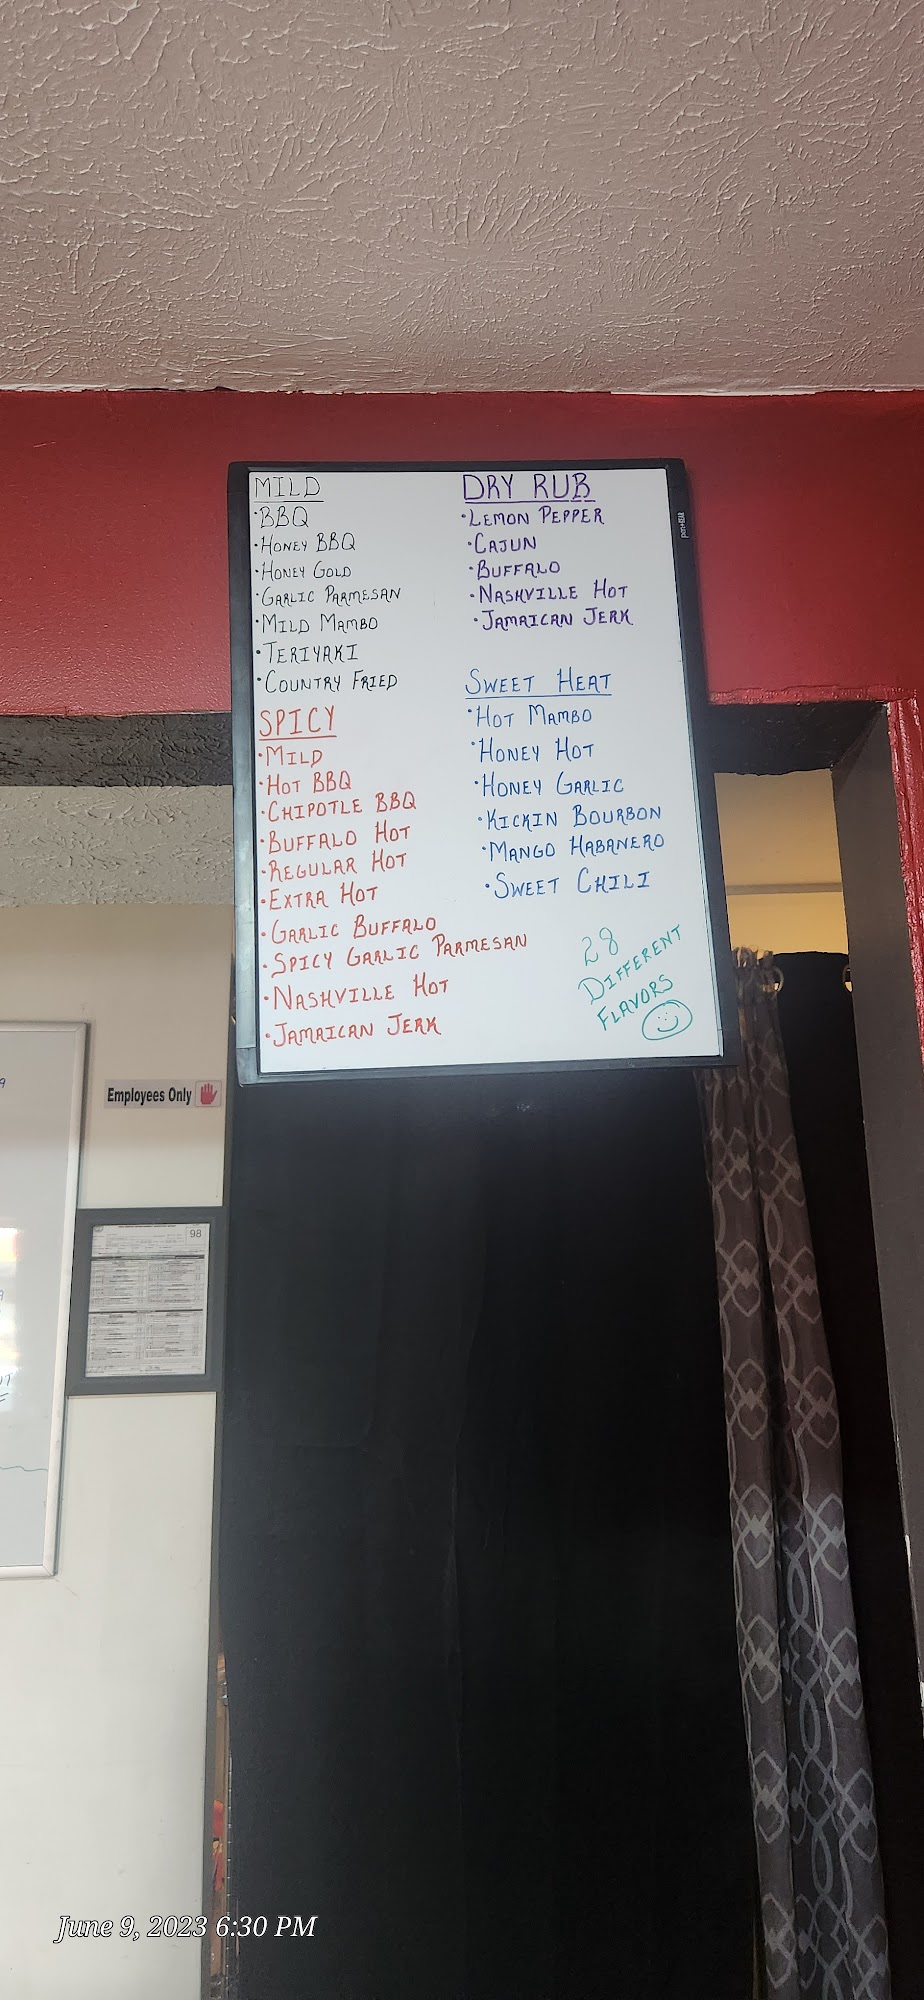 MILD
•BBQ
•HONEY BBQ
•HONEY GOLD
•GARLIC PARMESAN
•MILD MAMBO
•TERIYAKI
•COUNTRY FRIED
SPICY
•MILD
•HOT BBQ
•CHIPOTLE BBQ
•BUFFALO HOT
•REGULAR HOT
•EXTRA HOT
•GARLIC BUFFALO
•SPICY GARLIC PARMESAN
•NASHVILLE HOT
•JAMAICAN JERK
DRY RUB
•LEMON PEPPER
•CAJUN
•BUFFALO
•NASHVILLE HOT
•JAMAICAN JERK
SWEET HEAT
•HOT MAMBO
•HONEY HOT
•HONEY GARLIC
•KICKIN BOURBON
•MANGO HABANERO
•SWEET CHILI
28
DIFFERENT
FLAVORS
Employees Only
98
June 9, 2023 6:30 PM